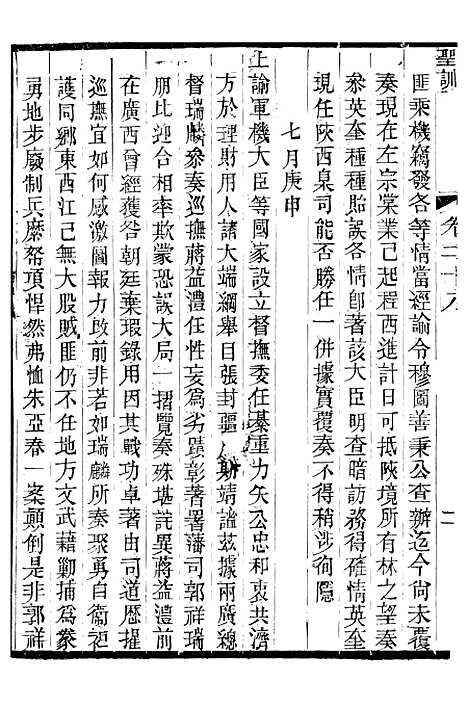 聖訓
卷二十八
二
匪乘機竊發各等情當經諭令穆圖善秉公查辦迄今尚未覆
奏現在左宗棠業已起程西進計日可抵陝境所有林之望奏
參英奎種種貽誤各情卽著該大臣明查暗訪務得確情英奎
現任陝西臬司能否勝任一併據實覆奏不得稍涉徇隱
七月庚申
上諭軍機大臣等國家設立督撫委任綦重力矢公忠和衷共濟
方於理財用人諸大端綱舉目張封疆乂靖謐茲據兩廣總
督瑞麟參奏巡撫蔣益澧任性妄為劣蹟彰著署藩司郭祥瑞
朋比迎合相率欺蒙恐誤大局一摺覽奏殊堪詫異蔣益澧前
在廣西曾經獲咎朝廷棄瑕錄用因其戰功卓著可道歷擢
巡撫宜如何感激圖報力啟前非若如瑞麟所奏聚勇自衞袒
護同鄉東西江已無大股賊匪仍不任地方文武藉勦捕為豢
勇地步廢制兵糜帑項悍然弗恤朱亞春一案顚倒是非郭祥